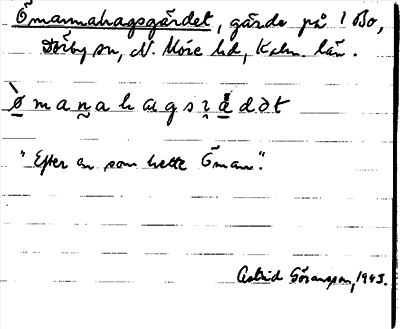 Ömannahagsgärdet, gärde på 1 Bo,
Dörby sn, N. Möre hd, Kalm. län.
ømaṉahagsɿ̯ädət
"Efter en som hette Öman".
Astrid Göransson, 1943.